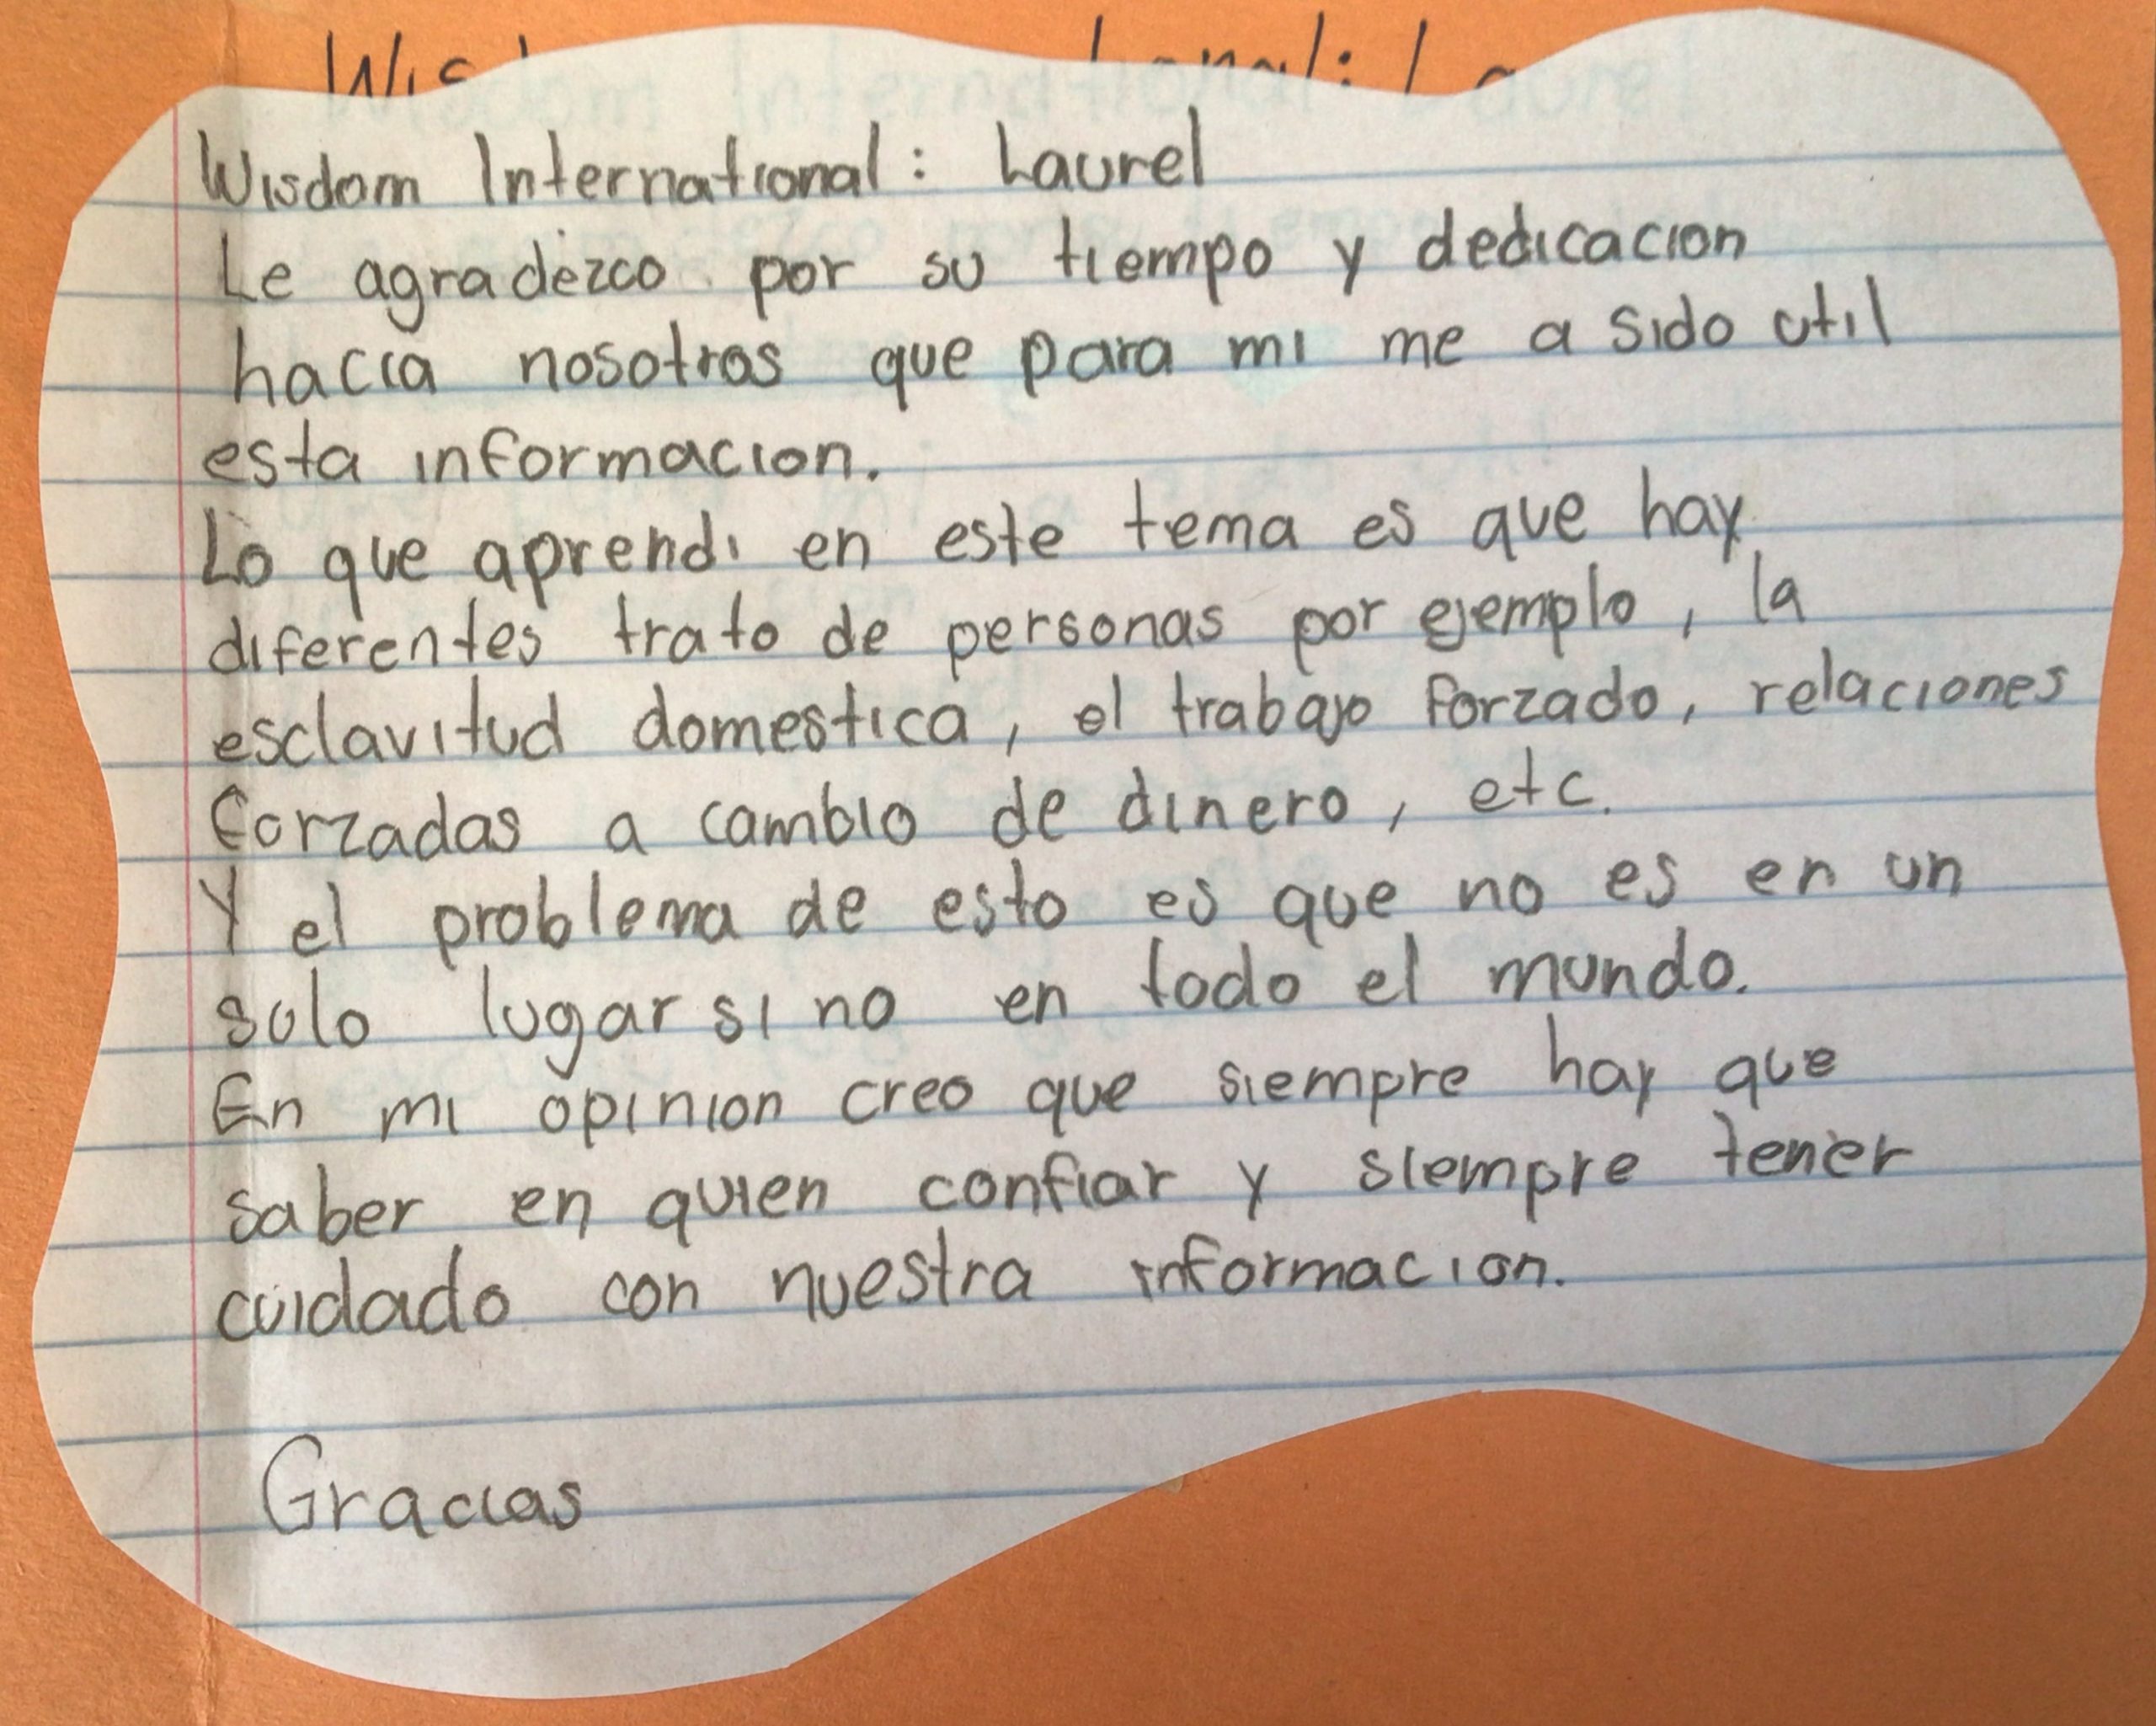 Wisdom International: Laurel
Le agradezco por su tiempo y dedicacion
hacia nosotros que para mi me a sido util
esta informacion.
Lo que aprendi en este tema es que hay
diferentes trato de personas por ejemplo, la
esclavitud domestica, el trabajo forzado, relaciones
forzadas a cambio de dinero, etc.
Y el problema de esto es que no es en un
solo lugar si no en todo el mundo.
En mi opinion creo que siempre hay que
saber en quien confiar y siempre tener
cuidado con nuestra informacion.
Gracias